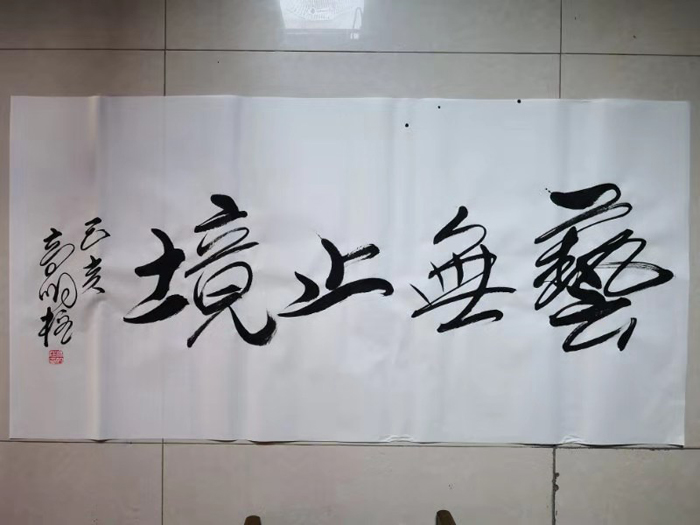 藝無止境
己亥
高明柱